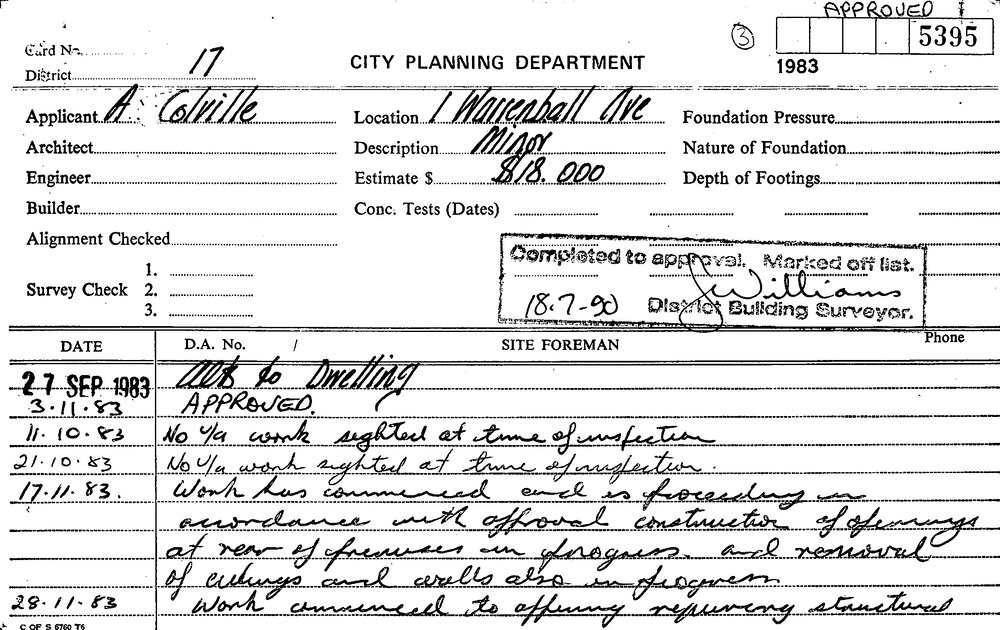 APPROVED
3
5395
1983
Card No.
District 17
CITY PLANNING DEPARTMENT
Applicant A Colville
Location 1 Warrenball Ave
Foundation Pressure
Architect
Description Minor
Nature of Foundation
Engineer
Estimate $ $18.000
Depth of Footings
Builder
Conc. Tests (Dates)
Alignment Checked
Survey Check
1.
2.
3.
Completed to approval. Marked off list.
18-7-90 Williams District Building Surveyor.
DATE
D.A. No. /
SITE FOREMAN
Phone
27 SEP 1983 Alts to Dwelling
3.11.83 APPROVED.
11.10.83 No u/a work sighted at time of inspection
21.10.83 No u/a work sighted at time of inspection.
17.11.83. Work has commenced and is proceeding in
accordance with approval construction of openings
at rear of premises in progress. and removal
of ceilings and walls also in progress
28.11.83 Work commenced to opening requiring structural
C OF S 6760 T6